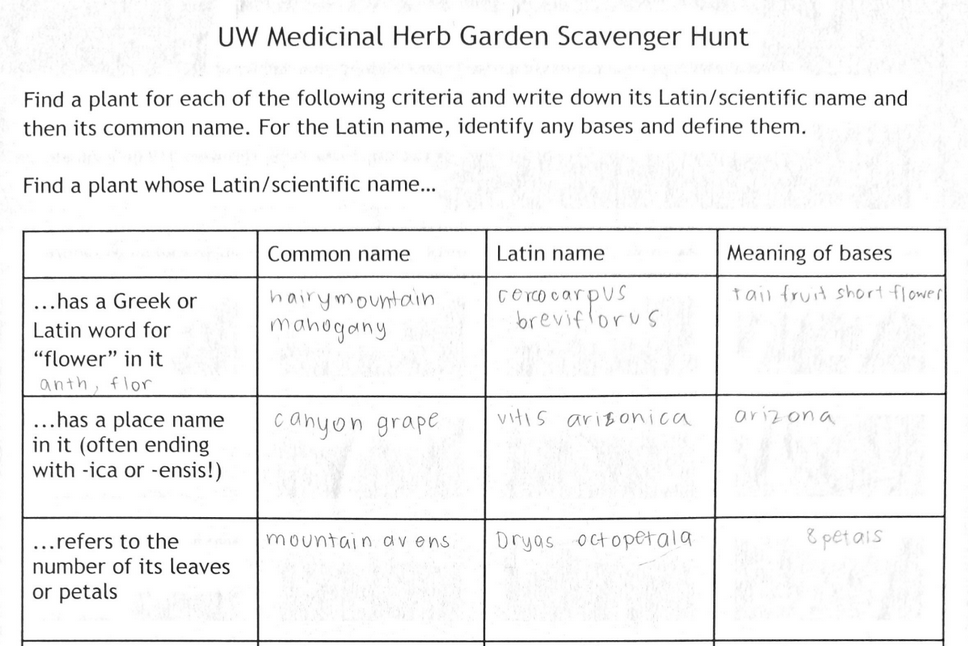 UW Medicinal Herb Garden Scavenger Hunt
Find a plant for each of the following criteria and write down its Latin/scientific name and
then its common name. For the Latin name, identify any bases and define them.
Find a plant whose Latin/scientific name...
Common name
Latin name
Meaning of bases
...has a Greek or
Latin word for
"flower" in it
anth, flor
hairymountain
mahogany
cercocarpus
breviflorus
tail fruit short flower
...has a place name
in it (often ending
with -ica or -ensis!)
canyon grape
vitis arizonica
arizona
...refers to the
number of its leaves
or petals
mountain avens
Dryas octopetala
8 petals